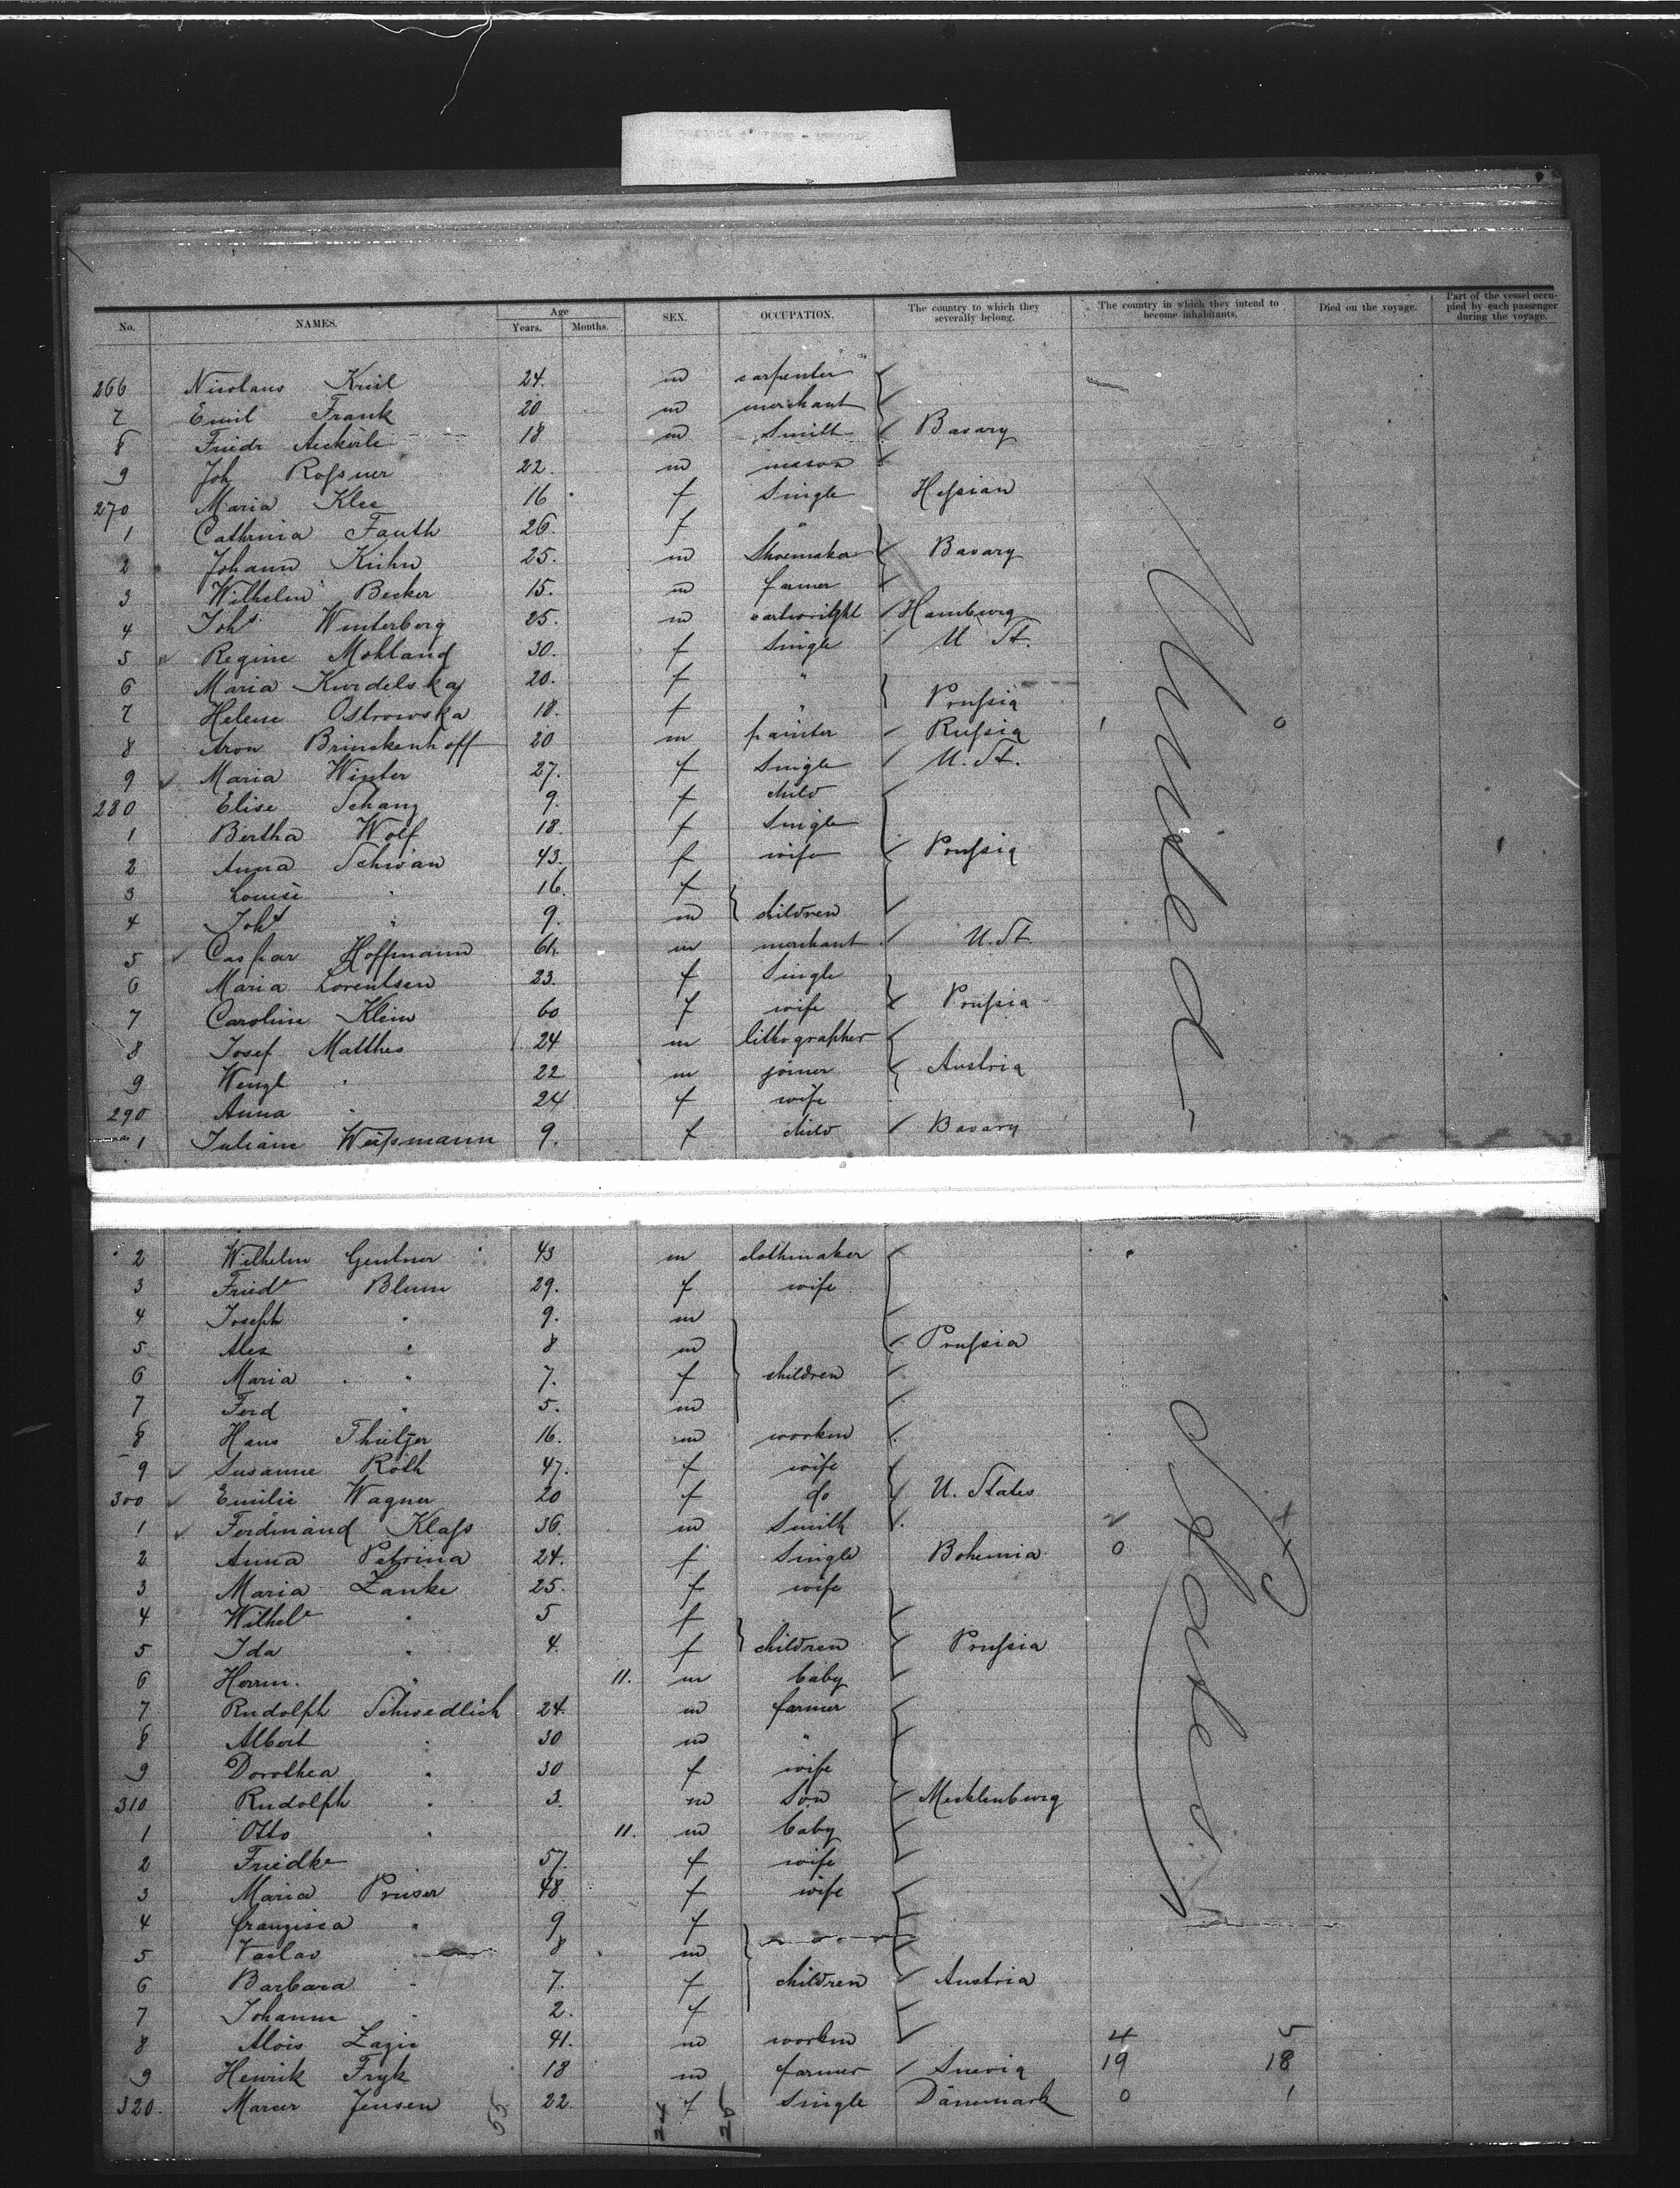 No. NAMES. Age Years. Months. SEX. OCCUPATION. The country to which they severally belong. The country in which they intend to become inhabitants. Died on the voyage. Part of the vessel occupied by each passenger during the voyage.
266 Nicolaus 24. m carpenter
7 Emil Frank 20 m merchant
8 Friedr 18 m Smith Bavary
9 Joh Roſsner 22. m mason
270 Maria Klee 16 f Single Heſsian
1 Cathrina Fauth 26. f "
2 Johann Kuhn 25. m Shoemaker Bavary
3 Wilhelm Becker 15. m farmer
4 Johs Winterberg 25. m cartwright Hamburg
5 Regine Mohland 30. f Single U St.
6 Maria Kurdelska 20. f "
7 Helene Ostrowska 18. f " Pruſsia
8 Aron Brinckenhoff 20 m painter Ruſsia 1 0
9 Maria Winter 27. f Single U. St.
280 Elise Schanz 9. f child
1 Bertha Wolf 18. f Single
2 Anna Schwan 43. f wife Pruſsia
3 Louise " 16. f
4 Joht " 9. m children
5 Caspar Hoffmann 61. m merchant U. St
6 Maria Lorentsen 23. f Single
7 Caroline Klein 60 f wife Pruſsia
8 Josef Matthes 24 m lithographer
9 Wenzl " 22 m joiner Austria
290 Anna " 24 f wife
1 Juliane Weiſsmann 9. f child Bavary
United
2 Wilhelm Gentner 43 m clothmaker
3 Friede Blum 29. f wife
4 Joseph " 9. m
5 Alex " 8 m Pruſsia
6 Maria " 7. f children
7 Ferd " 5. m
8 Hans 16. m workm
9 Susanne Roth 47. f wife
300 Emilie Wagner 20 f do U. States
1 Ferdinand Klaſs 36. m Smith
2 Anna Petrina 24. f Single Bohemia 0
3 Maria Zanke 25. f wife
4 Wilhele " 5 f
5 Ida " 4. f children Pruſsia
6 Herm. " 11. m baby
7 Rudolph Schwedlich 24. m farmer
8 Albert " 30 m "
9 Dorothea " 30 f wife
310 Rudolph " 3. m Son Mecklenburg
1 Otto " 11. m baby
2 Friedke 57. f wife
3 Maria 48 f wife
4 franzisca " 9 f
5 Vaclav 8 m
6 Barbara " 7. f children Austria
7 Johann " 2. f
8 Alois 41. m workm 4 5
9 Henrik Fryk 18 m farmer Suevia 19 18
320. Jensen 22. f Single Dänemark 0 1
States
55